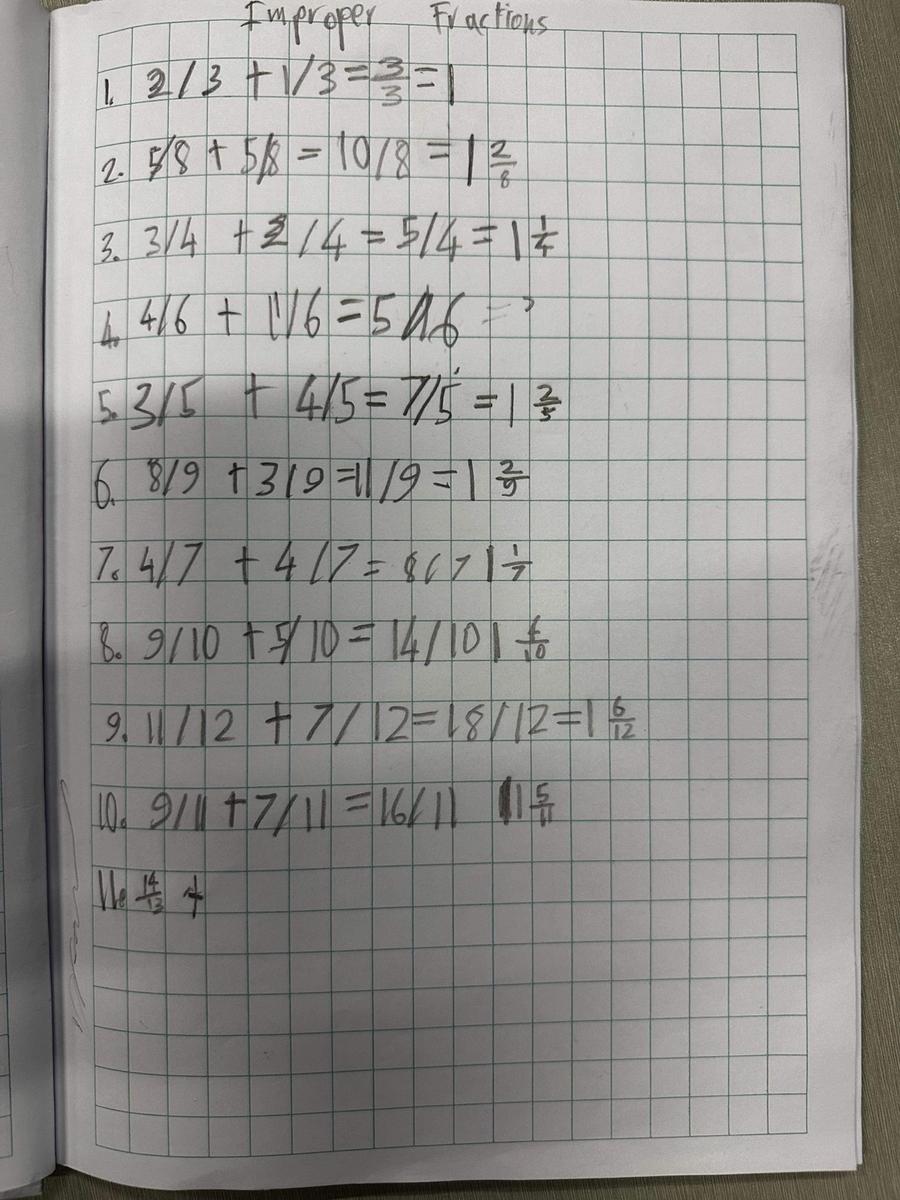 Improper Fractions
1. 2/3 + 1/3 = 3/3 = 1
2. 5/8 + 5/8 = 10/8 = 1 2/8
3. 3/4 + 2/4 = 5/4 = 1 1/4
4. 4/6 + 1/6 = 5/6 = ?
5. 3/5 + 4/5 = 7/5 = 1 2/5
6. 8/9 + 3/9 = 11/9 = 1 2/9
7. 4/7 + 4/7 = 8/7 1 1/7
8. 9/10 + 5/10 = 14/10 1 /10
9. 11/12 + 7/12 = 18/12 = 1 6/12
10. 9/11 + 7/11 = 16/11 1 5/11
11. 14/13 +